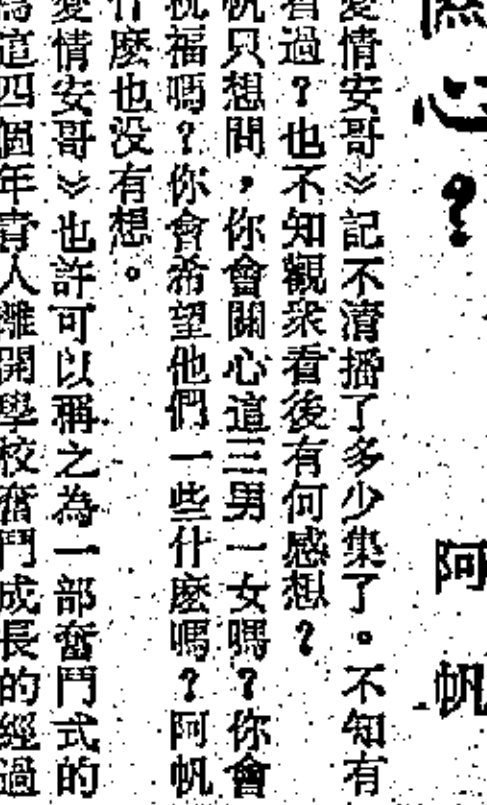 心？
阿帆
愛情安哥》記不清播了多少集了。不知有
看過？也不知觀衆看後有何感想？
帆只想問，你會關心這三男一女嗎？你會
祝福嗎？你會希望他們一些什麽嗎？阿帆
什麽也没有想。
愛情安哥》也許可以稱之為一部奮鬥式的
為這四個年青人離開學校奮鬥成長的經過